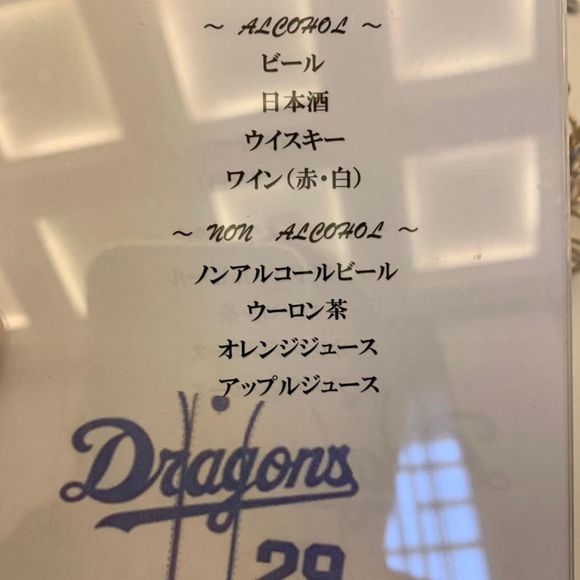 ～ ALCOHOL ～
ビール
日本酒
ウイスキー
ワイン（赤・白）
～ NON ALCOHOL ～
ノンアルコールビール
ウーロン茶
オレンジジュース
アップルジュース
Dragons
29